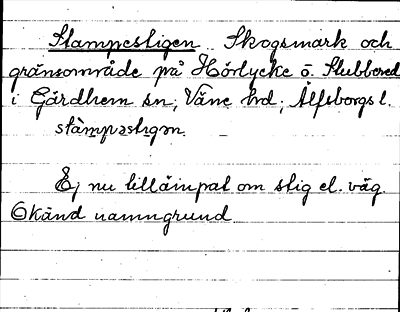 Stampestigen. Skogsmark och
gränsområde på Hörlycke o. Stubbered
i Gärdhem sn, Väne hd, Älfsborgs l.
stàmpəstìgən.
Ej nu tillämpat om stig el. väg.
Okänd namngrund